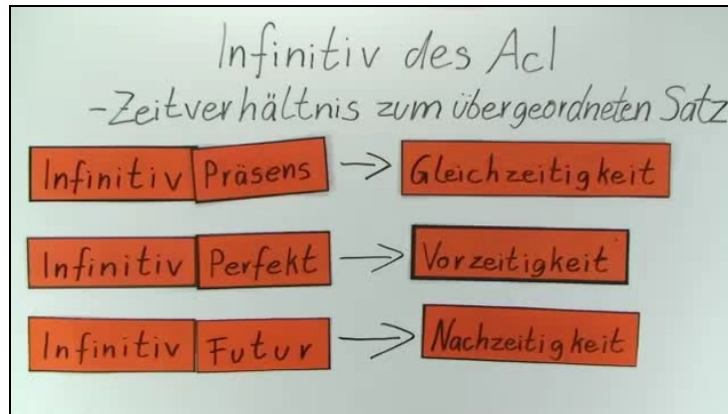 Infinitiv des AcI
-Zeitverhältnis zum übergeordneten Satz
Infinitiv Präsens → Gleichzeitigkeit
Infinitiv Perfekt → Vorzeitigkeit
Infinitiv Futur → Nachzeitigkeit